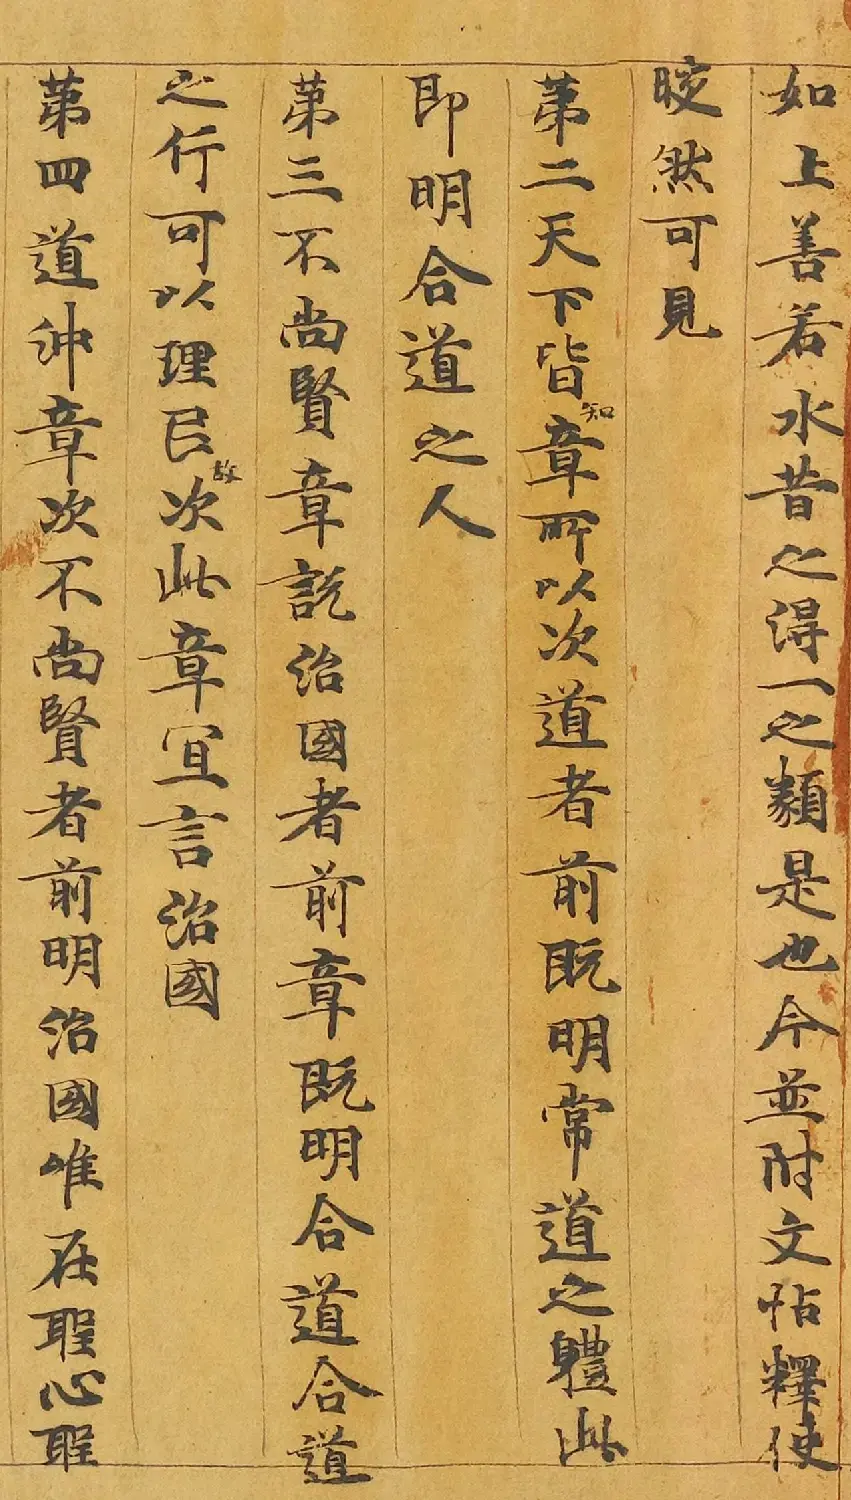 如上善若水昔之得一之類是也今並附文帖釋使
晈然可見
第二天下皆知章所以次道者前既明常道之體此
即明合道之人
第三不尚賢章訖治國者前章既明合道合道
之行可以理民故次此章宜言治國
第四道沖章次不尚賢者前明治國唯在聖心聖